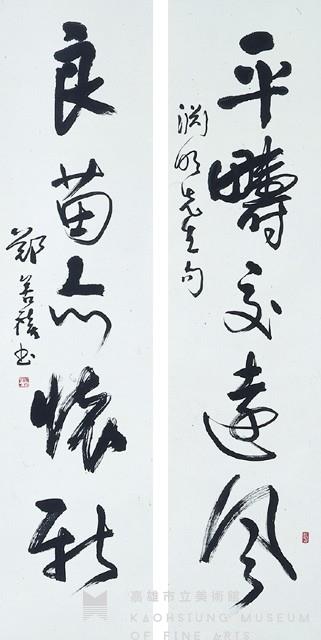 平疇交遠風
淵明先生句
良苗亦懷新
鄭善禧書
高雄市立美術館
KAOHSIUNG MUSEUM
OF FINE ARTS